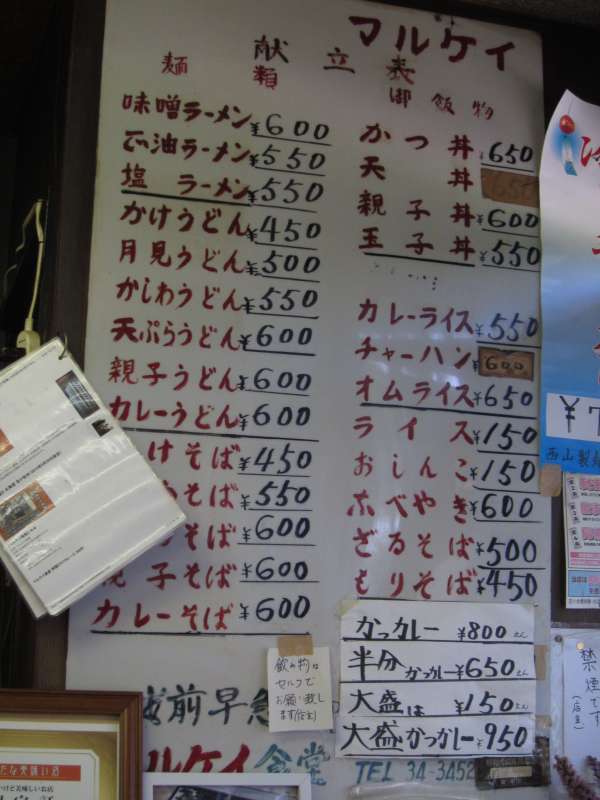 マルケイ
献立表
麺類
味噌ラーメン ¥600
正油ラーメン ¥550
塩ラーメン ¥550
かけうどん ¥450
月見うどん ¥500
かしわうどん ¥550
天ぷらうどん ¥600
親子うどん ¥600
カレーうどん ¥600
けそば ¥450
そば ¥550
そば ¥600
親子そば ¥600
カレーそば ¥600
御飯物
かつ丼 ¥650
天丼 650
親子丼 ¥600
玉子丼 ¥550
カレーライス ¥550
チャーハン ¥600
オムライス ¥650
ライス ¥150
おしんこ ¥150
なべやき ¥600
ざるそば ¥500
もりそば ¥450
かつカレー ¥800
半分かつカレー ¥650
大盛は ¥150
大盛かつカレー ¥950
飲み物は
セルフで
お願い致し
ます(店主)
前早
マルケイ食堂
TEL 34-3452
冷
¥7
西山製麺
禁煙です
(店主)